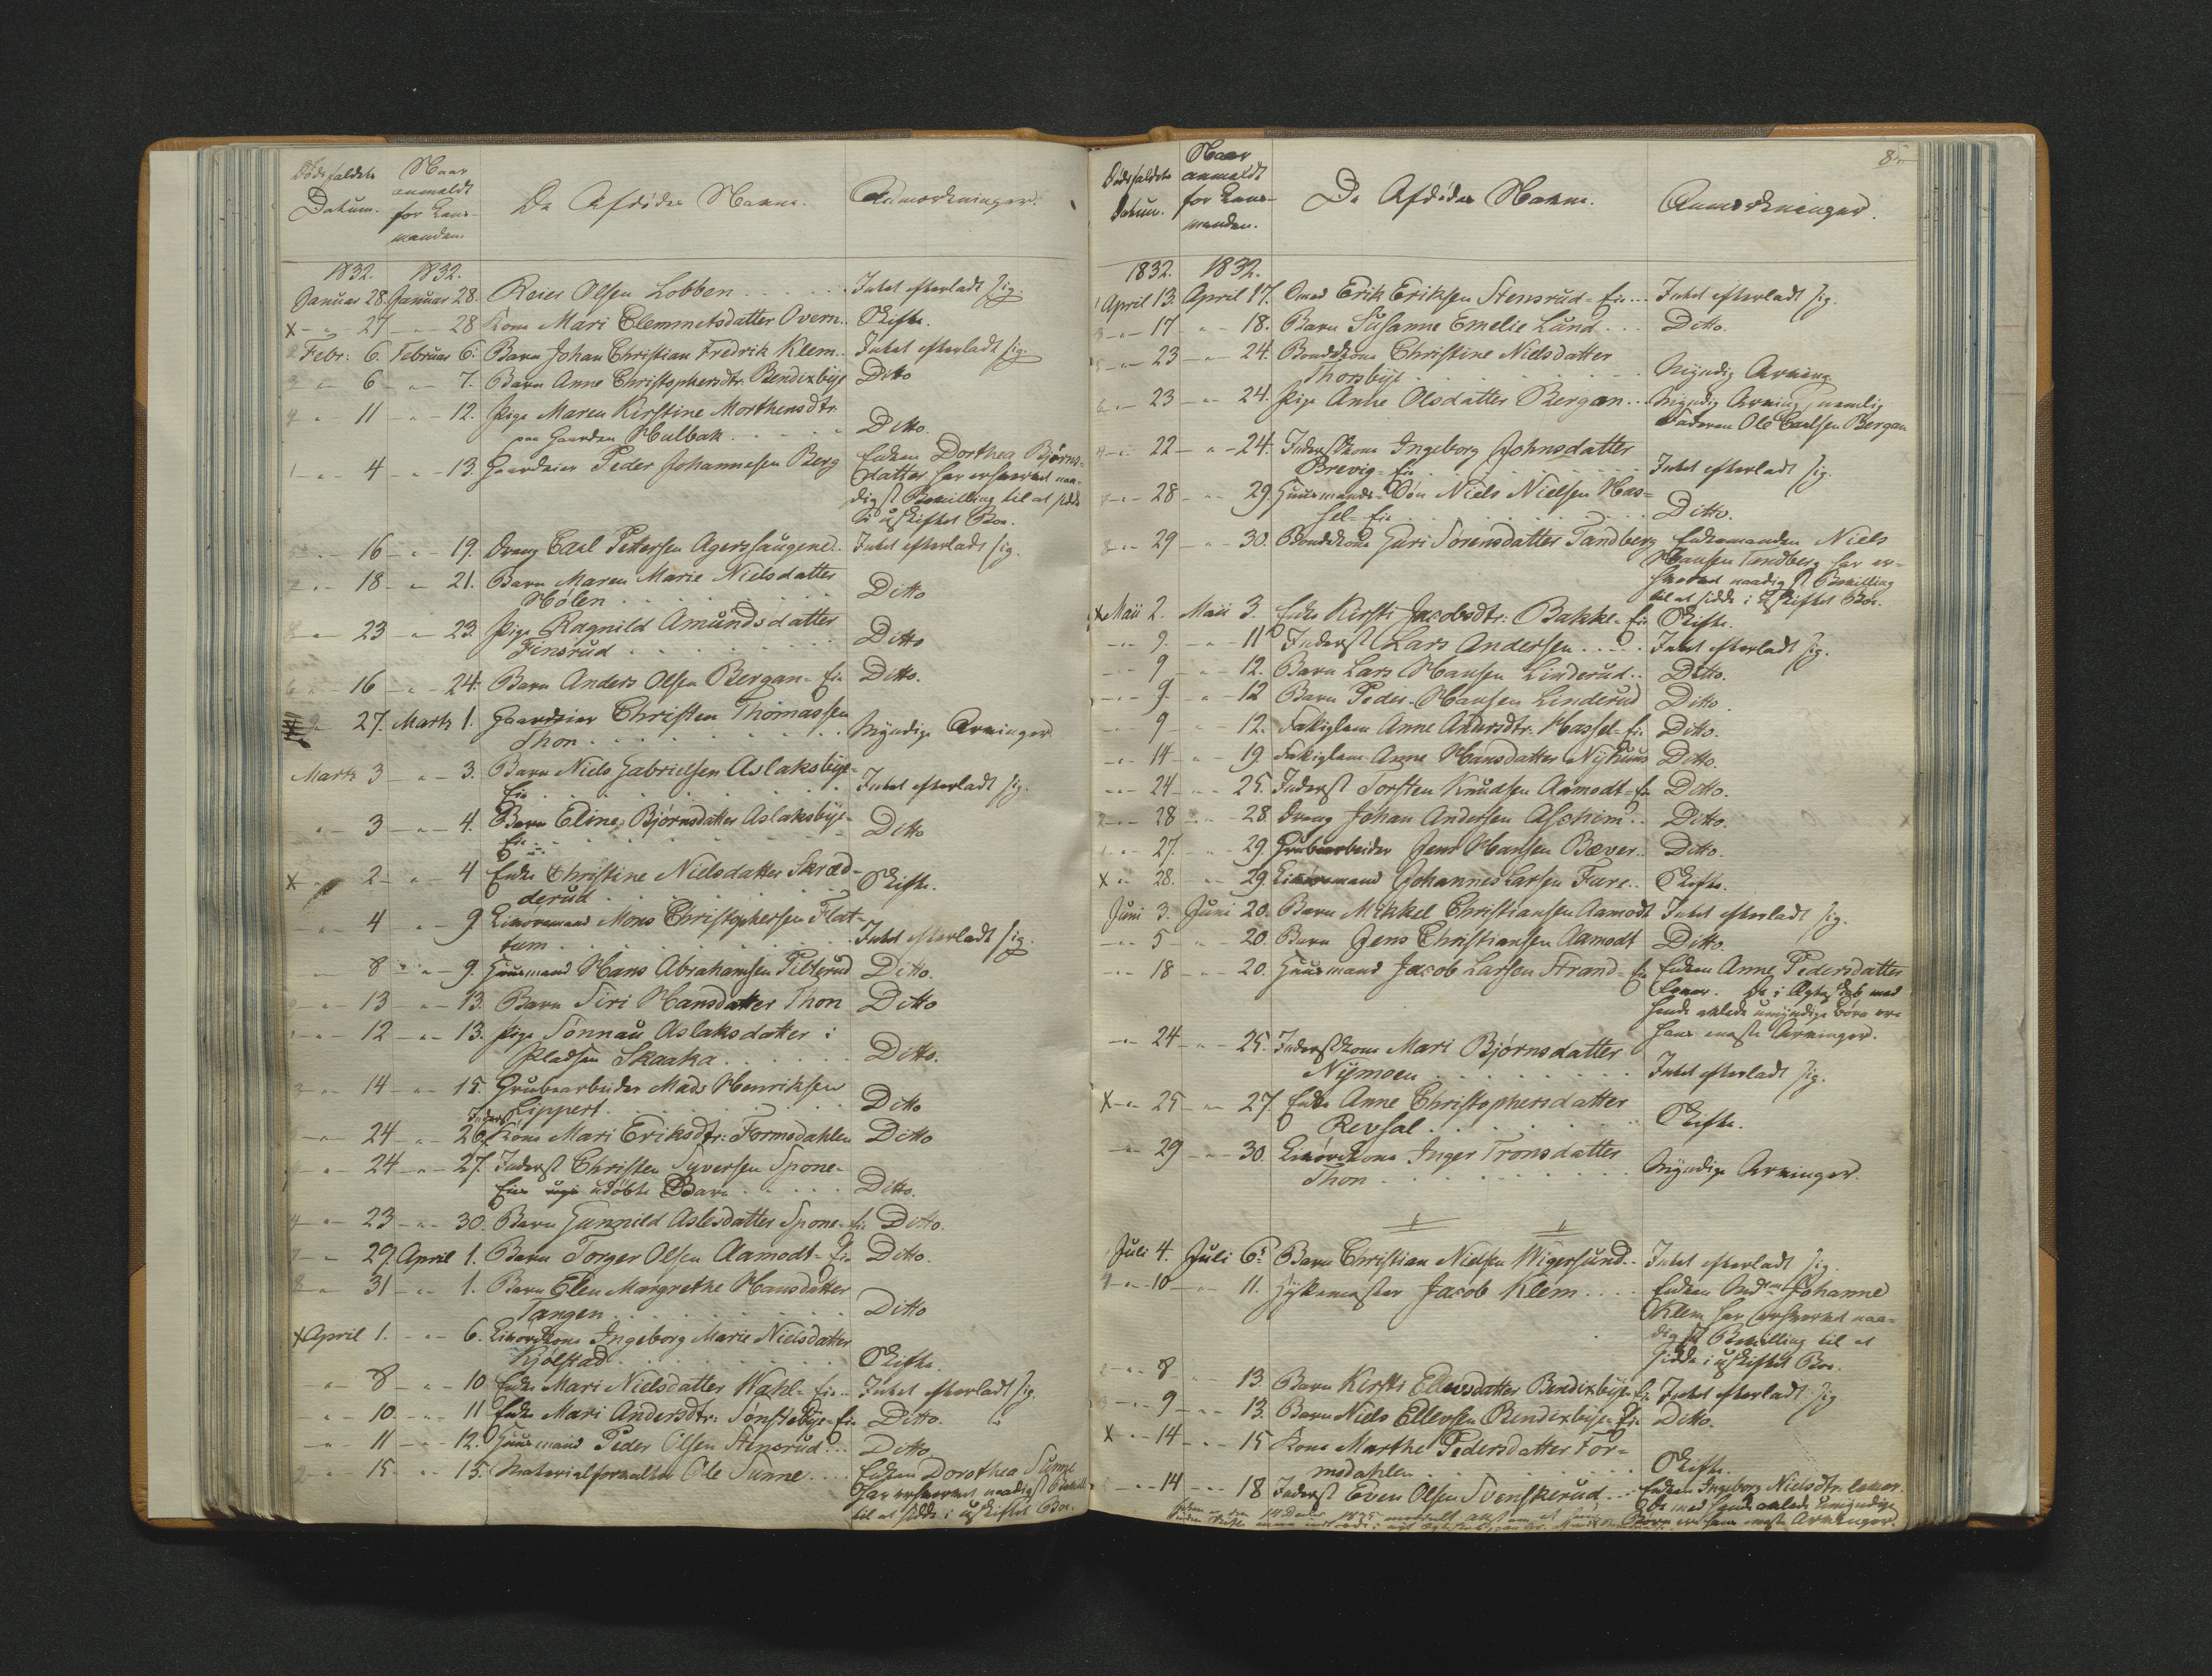 Dødsfaldets Datum.
Naar anmeldt for Lens-manden
De Afdødes Navne.
Anmærkninger.
1832. 1832.
Januar 28. Januar 28. Reier Olsen Lobben Intet efterladt sig.
X - " - 27 - " - 28 Kone Mari Clemmetsdatter Overn. Skifte.
Febr: 6. Februar 6. Barn Johan Christian Fredrik Klem Intet efterladt sig.
- " - 6 - " - 7. Barn Anne Christophersdtr. Bendixbye Ditto
- " - 11 - " - 12. Pige Maren Kirstine Morthensdtr.
paa Gaarden Hulbak Ditto.
- " - 4 - " - 13. Gaardeier Peder Johannesen Berg Enken Dorthea Bjørns-
datter har erhvervet naa-
digst Bevilling til at sidde
i uskiftet Boe.
- " - 16 - " - 19. Dreng Carl Petersen Agerssaugene Intet efterladt sig.
- " - 18 - " - 21. Barn Maren Marie Nielsdatter
Hølen Ditto
- " - 23 - " - 23. Pige Ragnild Amundsdatter
Finsrud Ditto
- " - 16 - " - 24. Barn Anders Olsen Bergan-Eie Ditto.
27. Marts 1. Gaardeier Christen Thomassen
Thon Myndige Arvinger.
Marts 3 - " - 3. Barn Niels Gabrielsen Aslaksbye-
Eie Intet efterladt sig.
- " - 3 - " - 4. Barn Eline Bjørnsdatter Aslaksbye-
Eie Ditto
X 2 - " - 4 Enke Christine Nielsdatter Skræd-
derud Skifte.
- " - 4 - " - 9. Livøremand Mons Christophersen Flat-
tum Intet efterladt sig.
8 - " - 9. Huusmand Hans Abrahamsen Pilterud Ditto.
- " - 13 - " - 13. Barn Siri Hansdatter Thon Ditto
- " - 12 - " - 13. Pige Sønnau Aslaksdatter i
Pladsen Skaaka Ditto.
- " - 14 - " - 15. Grubearbeider Mads Henriksen
Lippert Ditto
- " - 24 - " - 26. Inderst Kone Mari Eriksdtr: Formodahlen Ditto
- " - 24 - " - 27. Inderst Christen Syversen Spone-
Eies udøbte Barn Ditto.
- " - 23 - " - 30. Barn Gunnild Aslesdatter Spone-Eie Ditto.
- " - 29. April 1. Barn Torger Olsen Aamodt-Eie Ditto.
- " - 31 - " - 1. Barn Elen Margrethe Hansdatter
Tangen Ditto
X April 1. - " - 6. Livørekone Ingeborg Marie Nielsdatter
Kjølstad Skifte.
- " - 8 - " - 10 Enke Mari Nielsdatter Wahl-Eie Intet efterladt sig.
- " - 10. - " - 11 Enke Mari Andersdtr: Sønstebye-Eie Ditto.
- " - 11 - " - 12. Huusmand Peder Olsen Stensrud Ditto
- " - 15. - " - 15. Materialforvalter Ole Sunne Enken Dorothea Sunne
har erhvervet naadigst Bevill.
til at sidde i uskiftet Boe.
85
Dødsfaldets Datum.
Naar anmeldt for Lens-manden.
De Afdødes Navne.
Anmærkninger.
1832. 1832.
April 13. April 17. Smed Erik Eriksen Stensrud-Eie Intet efterladt sig.
- " - 17 - " - 18. Barn Susanne Emelie Lund Ditto.
- " - 23 - " - 24. Bondekone Christine Nielsdatter
Thorsbye Myndig Arving.
- " - 23 - " - 24. Pige Anne Olsdatter Bergan Myndig Arving nemlig
Faderen Ole Carlsen Bergan
- " - 22 - " - 24. Inderstkone Ingeborg Johnsdatter
Brevig-Eie Intet efterladt sig.
- " - 28 - " - 29. Huusmands-Søn Niels Nielsen Has-
sel-Eie Ditto.
- " - 29 - " - 30. Bondekone Guri Sørensdatter Tandberg Enkemanden Niels
Hansen Tandberg har er-
hvervet naadigst Bevilling
til at sidde i uskiftet Boe.
X Maii 2. Maii 3. Enke Kirsti Jacobsdtr: Bakke-Eie Skifte.
- " - 9. - " - 11 Inderst Lars Andersen Intet efterladt sig.
9 - " - 12. Barn Lars Hansen Linderud Ditto.
- " - 9 - " - 12 Barn Peder Hansen Linderud Ditto.
- " - 9 - " - 12. Fatiglem Anne Andersdtr. Hassel-Eie Ditto.
- " - 14 - " - 19. Fatiglem Anne Hansdatter Nyhuus Ditto.
- " - 24 - " - 25. Inderst Torsten Knudsen Aamodt-Eie Ditto.
- " - 28 - " - 28. Dreng Johan Andersen Aschim Ditto.
- " - 27. - " - 29 Grubearbeider Jens Hansen Bæver Ditto.
X - " - 28. - " - 29. Livøremand Johannes Larsen Fure Skifte.
Juni 3. Juni 20. Barn Mikkel Christiansen Aamodt Intet efterladt sig.
- " - 5 - " - 20. Barn Jens Christiansen Aamodt Ditto.
- " - 18 - " - 20. Huusmand Jacob Larsen Strand-Eie Enken Anne Pedersdatter
lever. De i Ægteskab med
hende avlede umyndige Børn ere
hans eneste Arvinger.
- " - 24 - " - 25. Inderstkone Mari Bjørnsdatter
Nymoen Intet efterladt sig.
X - " - 25 - " - 27. Enke Anne Christophersdatter
Revsal Skifte.
- " - 29 - " - 30. Livørekone Inger Tronsdatter
Thon Myndige Arvinger.
Juli 4. Juli 6. Barn Christian Nielsen Wigersund Intet efterladt sig.
- " - 10 - " - 11. Hyttemester Jacob Klem Enken Johanne
Klem har erhvervet naa-
digst Bevilling til at
sidde i uskiftet Boe.
- " - 8 - " - 13. Barn Kirsti Ellevsdatter Bendixbye-Eie Intet efterladt sig.
- " - 9 - " - 13. Barn Niels Ellevsen Bendixbye-Eie Ditto.
X - " - 14 - " - 15 Kone Marthe Pedersdatter For-
modahlen Skifte.
- " - 14 - " - 18 Inderst Even Olsen Svenskerud Enken Ingeborg Nielsdtr. lever.
De med hende avlede umyndige
Børn ere hans eneste Arvinger.